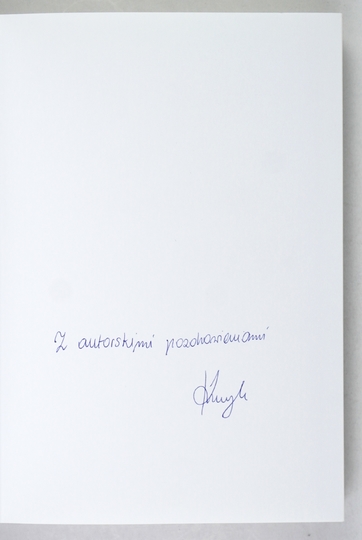 Z autorskimi pozdrowieniami